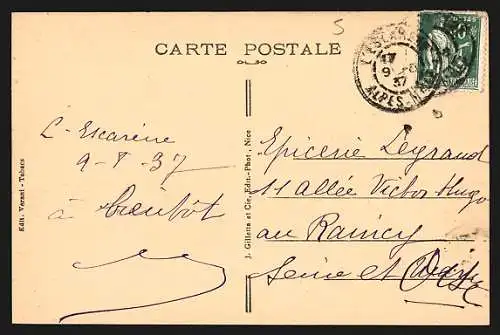 5
CARTE POSTALE
L'ESCARÈNE
17
9 -8
37
ALPES-M
L-Escarène
9-8-37
à bientôt
Edit. Verani - Tabacs
J. Gilletta et Cie, Edit.-Phot., Nice
Epicerie Legrand
11 Allée Victor Hugo
au Raincy
Seine et Oise